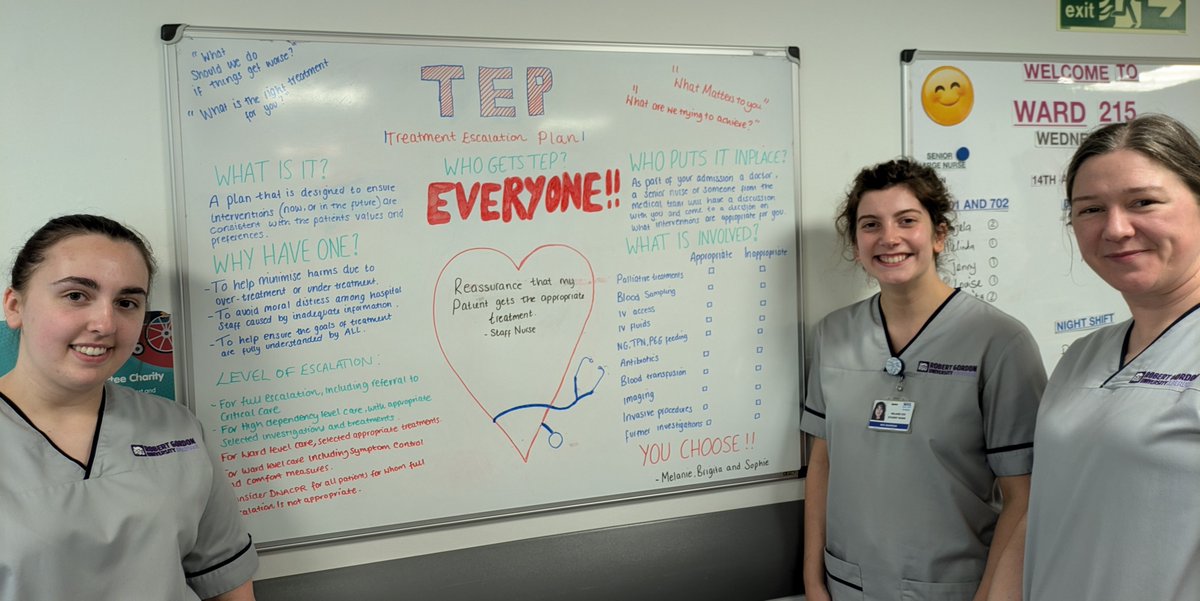 "What
Should we do
if things get worse?"
"What is the right treatment
for you?"
TEP
Treatment Escalation Plan
"What Matters to you"
"What are we trying to achieve?"
WHAT IS IT?
A plan that is designed to ensure
interventions (now, or in the future) are
consistent with the patients values and
preferences.
WHY HAVE ONE?
- To help minimise harms due to
over-treatment or under treatment.
- To avoid moral distress among hospital
Staff caused by inadequate information.
- To help ensure the goals of treatment
are fully understood by ALL.
LEVEL OF ESCALATION:
- For full escalation, including referral to
Critical Care.
- For High dependency level care, with appropriate
Selected investigations and treatments.
For Ward level care, selected appropriate treatments.
For Ward level care including Symptom Control
and comfort measures.
Consider DNACPR for all patients for whom full
escalation is not appropriate.
WHO GETS TEP?
EVERYONE!!
Reassurance that my
Patient gets the appropriate
treatment.
- Staff Nurse
WHO PUTS IT INPLACE?
As part of your admission a doctor,
a senior nurse or someone from the
medical team will have a discussion
with you and come to a decision on
what interventions are appropriate for you.
WHAT IS INVOLVED?
Appropriate Inappropriate
Palliative treatments
Blood Sampling
IV access
IV fluids
NG, TPN, PEG feeding
Antibiotics
Blood transfusion
Imaging
Invasive procedures
Further investigations
YOU CHOOSE!!
- Melanie, Brigita and Sophie
exit
WELCOME TO
WARD 215
SENIOR
CHARGE NURSE
14TH
AND 702
Jenny
NIGHT SHIFT
tee Charity
ROBERT GORDON
UNIVERSITY
ROBERT GORDON
UNIVERSITY
ROBERT GORDON
UNIVERSITY